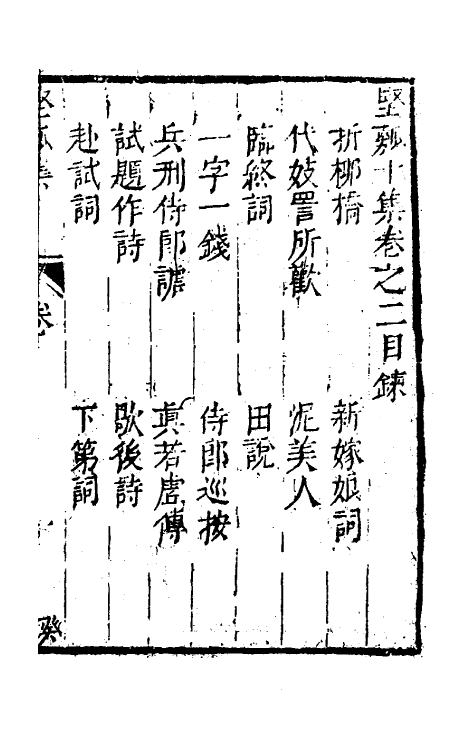 堅瓠十集卷之二目錄
折桺橋　新嫁娘詞
代妓詈所歡　泥美人
臨終詞　田說
一字一錢　侍郎巡按
兵刑侍郎謔　真若虛傳
試題作詩　歇後詩
赴試詞　下第詞
堅瓠集　卷　一　癸